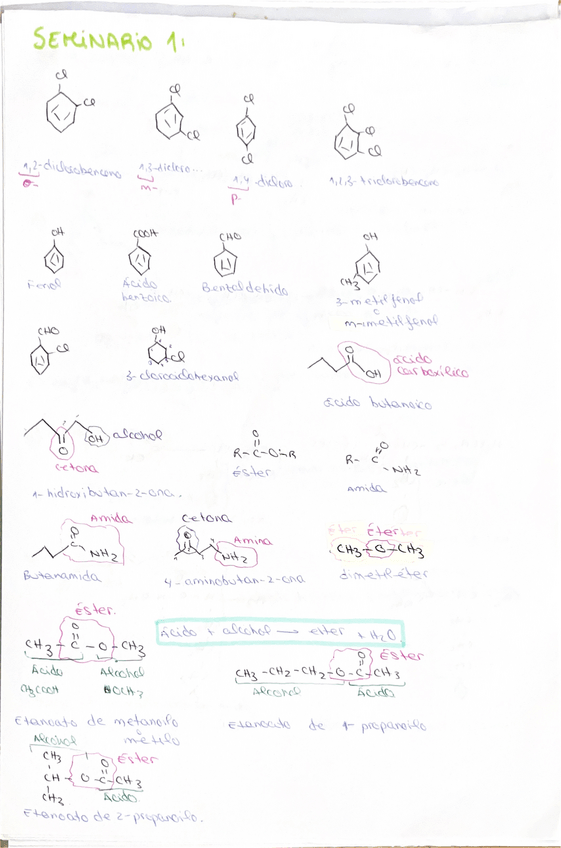 SEMINARIO 1:
Cl
Cl
Cl
Cl
Cl
Cl
Cl
Cl
Cl
1,2-diclorobenceno 1,3-dicloro... 1,4 dicloro... 1,2,3-triclorobenceno
o- m- p-
OH COOH CHO OH
CH3
Fenol Ácido benzoico Bentaldehido 3-metilfenol
m-metilfenol
CHO
Cl
OH
Cl
3-clorociclohexanol
O
OH
ácido carboxílico
ácido butanoico
O
OH alcohol
cetona
1-hidroxibutan-2-ona.
O
R-C-O-R
Éster
O
R-C
NH2
Amida
Amida
O
C
NH2
Butanamida
Cetona
O
Amina
NH2
4-aminobutan-2-ona
Éter
CH3-O-CH3
dimetil éter
Éster.
O
CH3-C-O-CH3
Ácido Alcohol
Ácido + alcohol → ester + H2O
O
Éster
CH3-CH2-CH2-O-C-CH3
Alcohol Ácido
Etanoato de metanoilo
metilo
Etanoato de 1-propanoilo
Alcohol
CH3
Éster
O
CH-O-C-CH3
CH3
Ácido
Etanoato de 2-propanoilo.